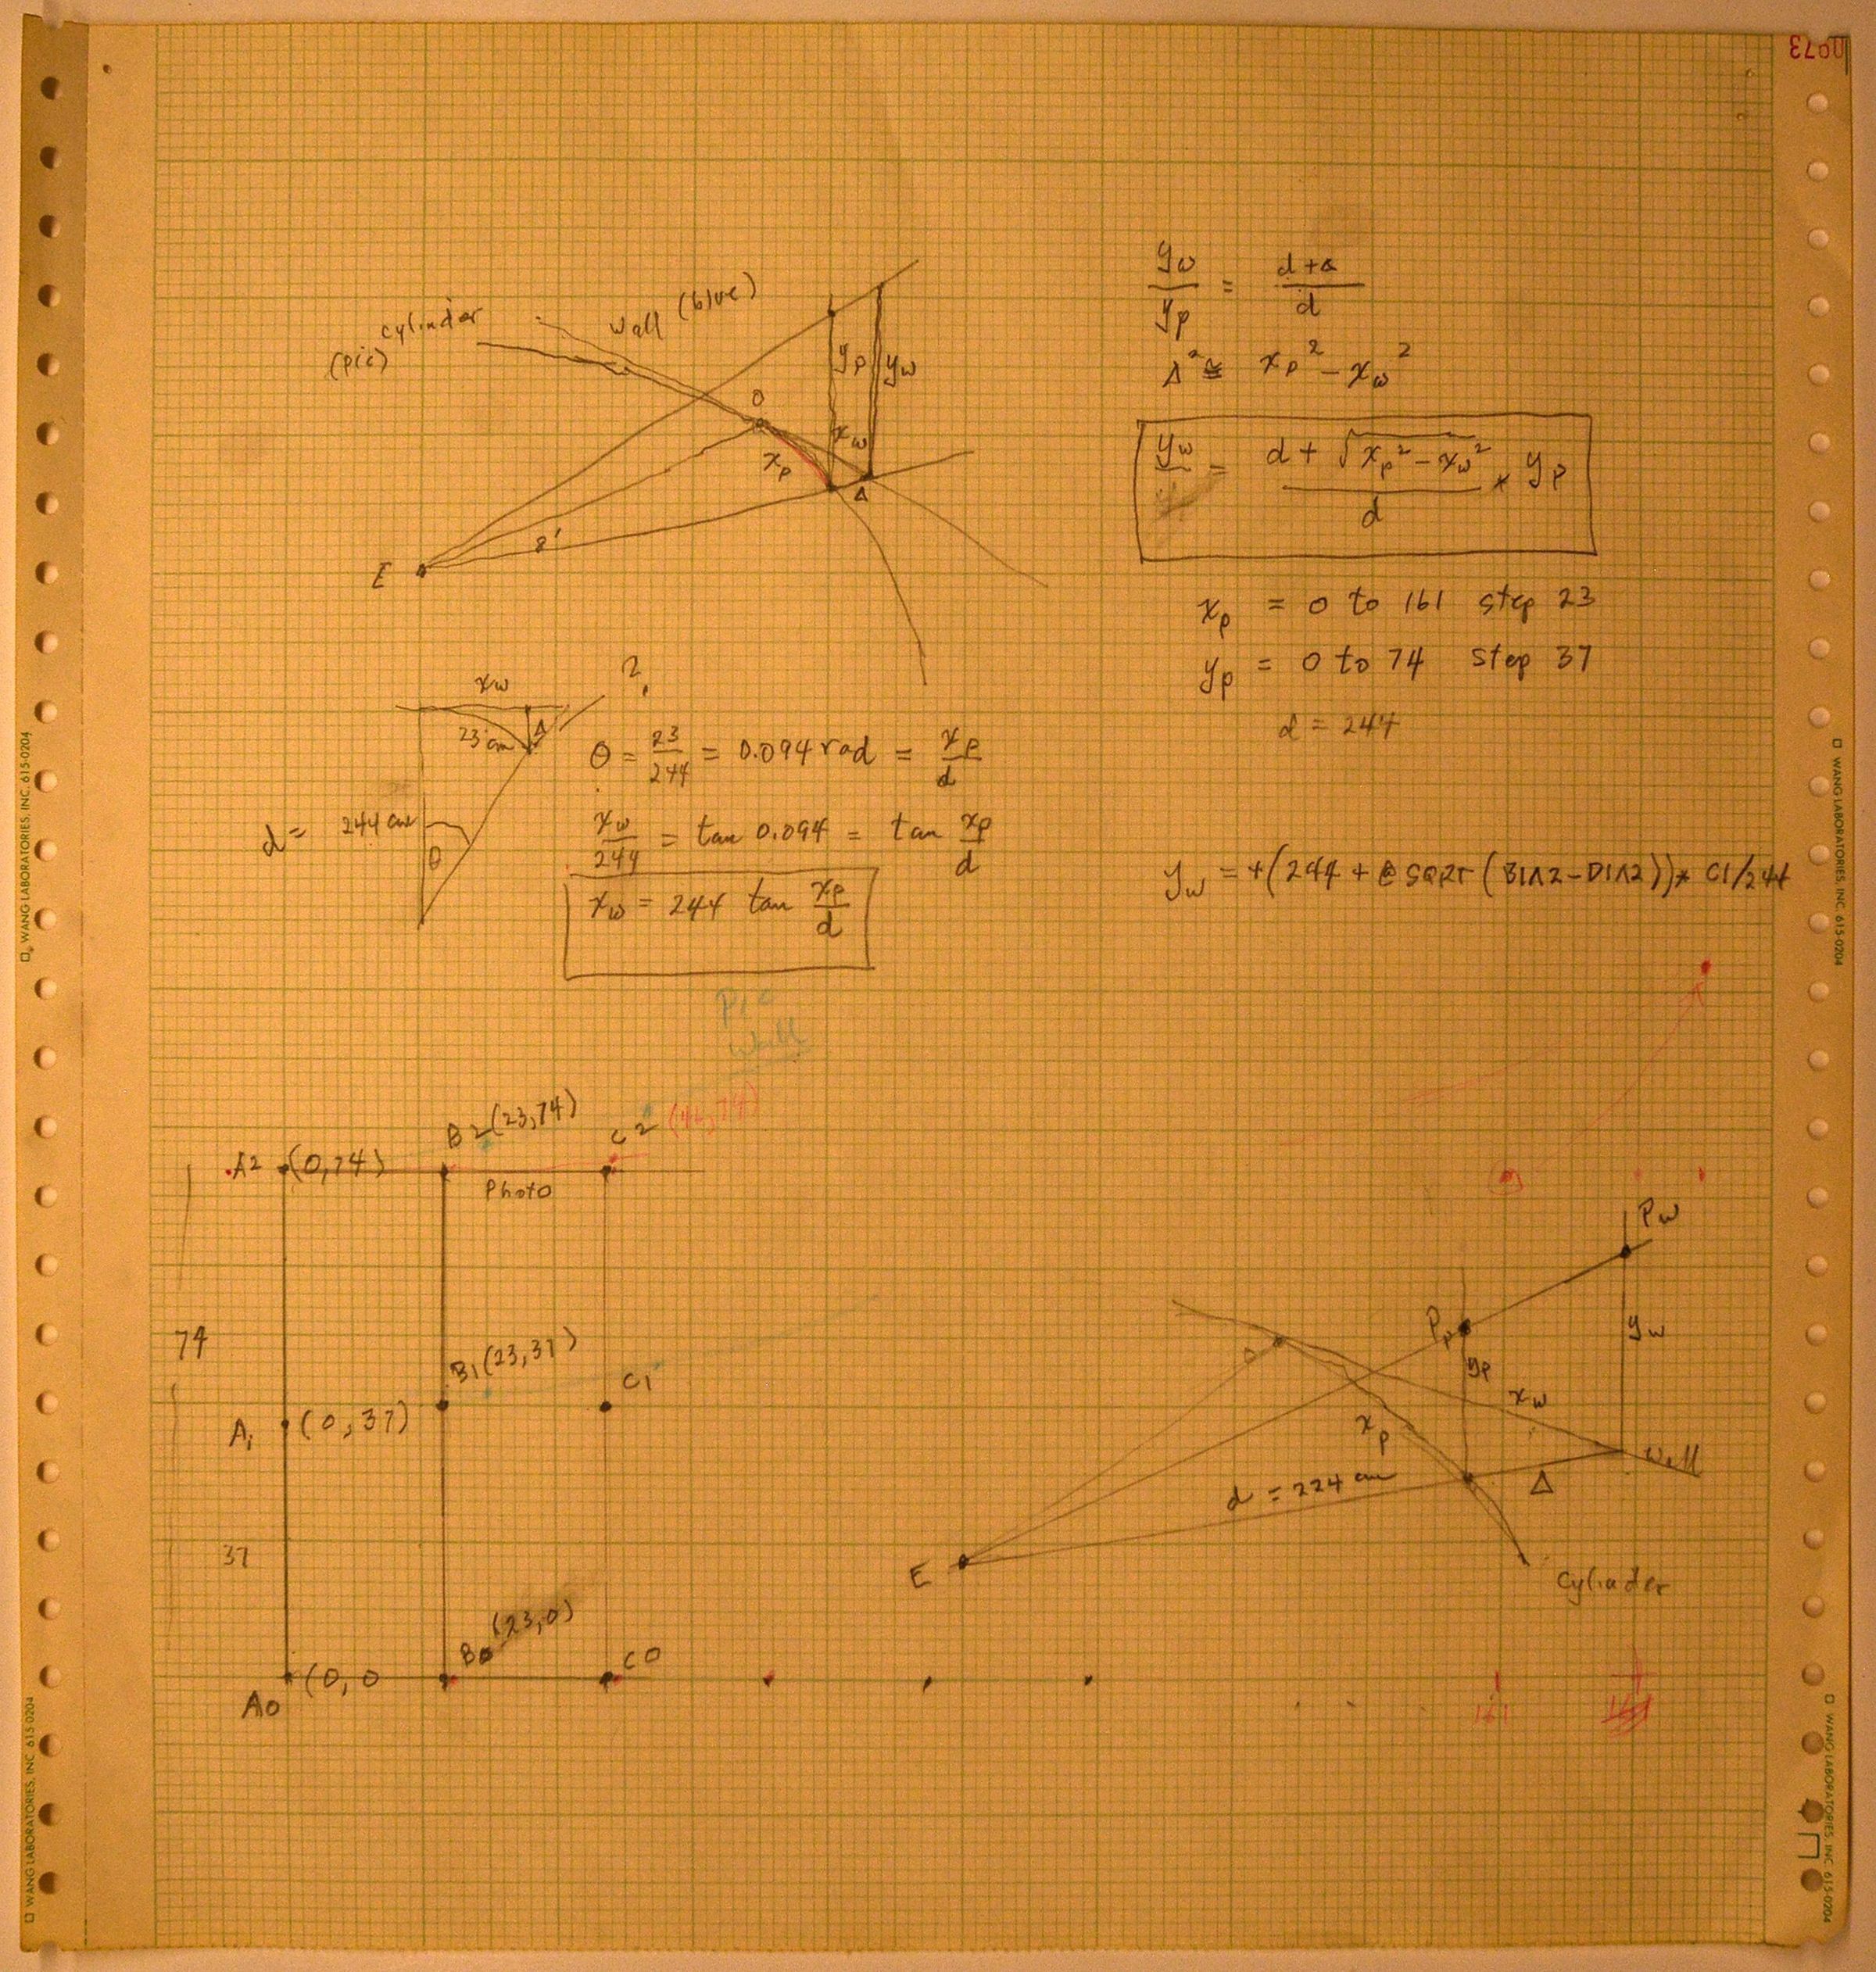 0073
cylinder
(pic)
Wall (blue)
O
yp
yw
xw
xp
Δ
8'
E
yw / yp = d+Δ / d
Δ² ≅ xp² - xw²
yw = d + √xp² - xw² / d * yp
xp = 0 to 161 step 23
yp = 0 to 74 step 37
d = 244
xw
?
23 cm
Δ
d = 244 cm
θ
θ = 23/244 = 0.094 rad = xp/d
xw/244 = tan 0.094 = tan xp/d
xw = 244 tan xp/d
yw = +(244 + @SQRT(B1^2-D1^2))* C1/244
Pic
Wall
A2 (0,74)
B2 (23,74)
C2 (46,74)
Photo
74
A1 (0,37)
B1 (23,37)
C1
37
A0 (0,0
B0 (23,0)
C0
161
Pw
Pp
yp
yw
O
xw
xp
Wall
d = 224 cm
Δ
E
Cylinder
WANG LABORATORIES, INC. 615-0204
WANG LABORATORIES, INC. 615-0204
WANG LABORATORIES, INC. 615-0204
WANG LABORATORIES, INC. 615-0204